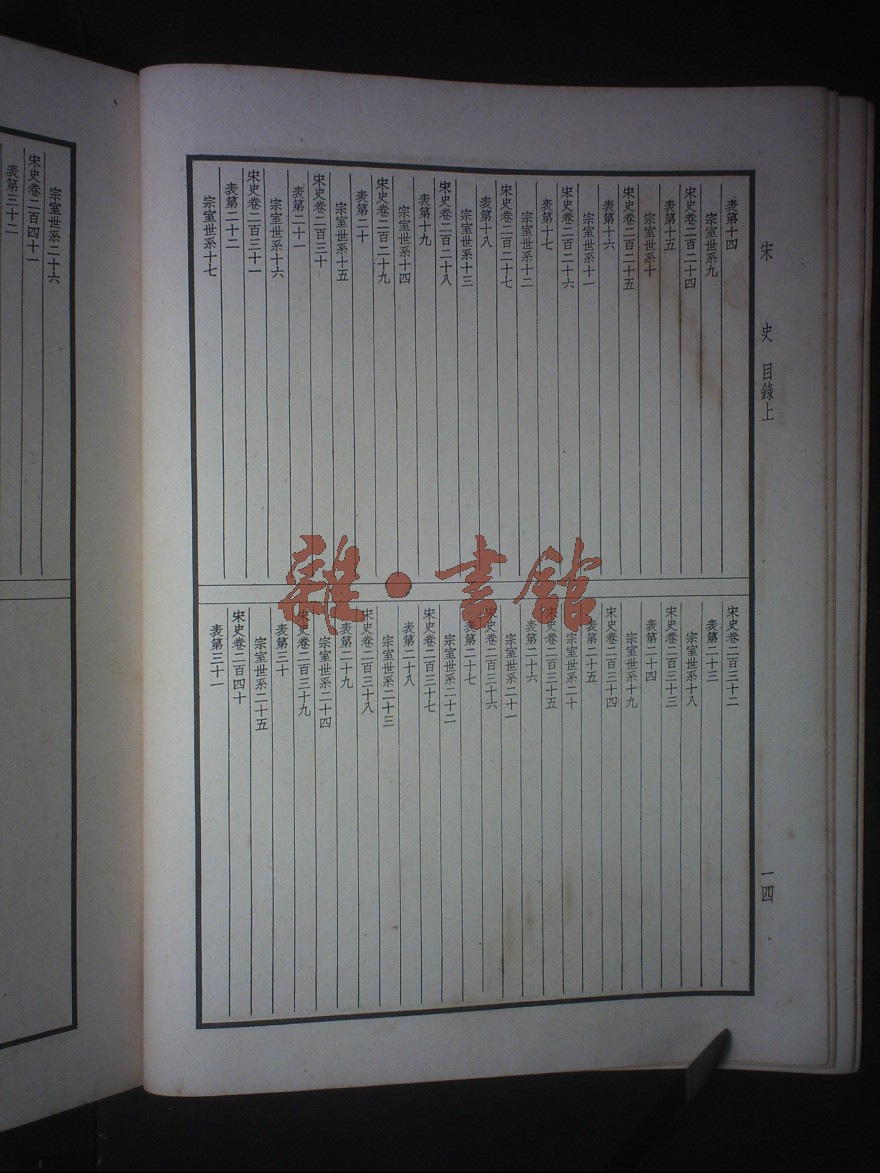 宋史 目錄上
一四
表第十四
宗室世系九
宋史卷二百二十四
表第十五
宗室世系十
宋史卷二百二十五
表第十六
宗室世系十一
宋史卷二百二十六
表第十七
宗室世系十二
宋史卷二百二十七
表第十八
宗室世系十三
宋史卷二百二十八
表第十九
宗室世系十四
宋史卷二百二十九
表第二十
宗室世系十五
宋史卷二百三十
表第二十一
宗室世系十六
宋史卷二百三十一
表第二十二
宗室世系十七
宋史卷二百三十二
表第二十三
宗室世系十八
宋史卷二百三十三
表第二十四
宗室世系十九
宋史卷二百三十四
表第二十五
宗室世系二十
宋史卷二百三十五
表第二十六
宗室世系二十一
宋史卷二百三十六
表第二十七
宗室世系二十二
宋史卷二百三十七
表第二十八
宗室世系二十三
宋史卷二百三十八
表第二十九
宗室世系二十四
宋史卷二百三十九
表第三十
宗室世系二十五
宋史卷二百四十
表第三十一
宗室世系二十六
宋史卷二百四十一
表第三十二
雜·書館